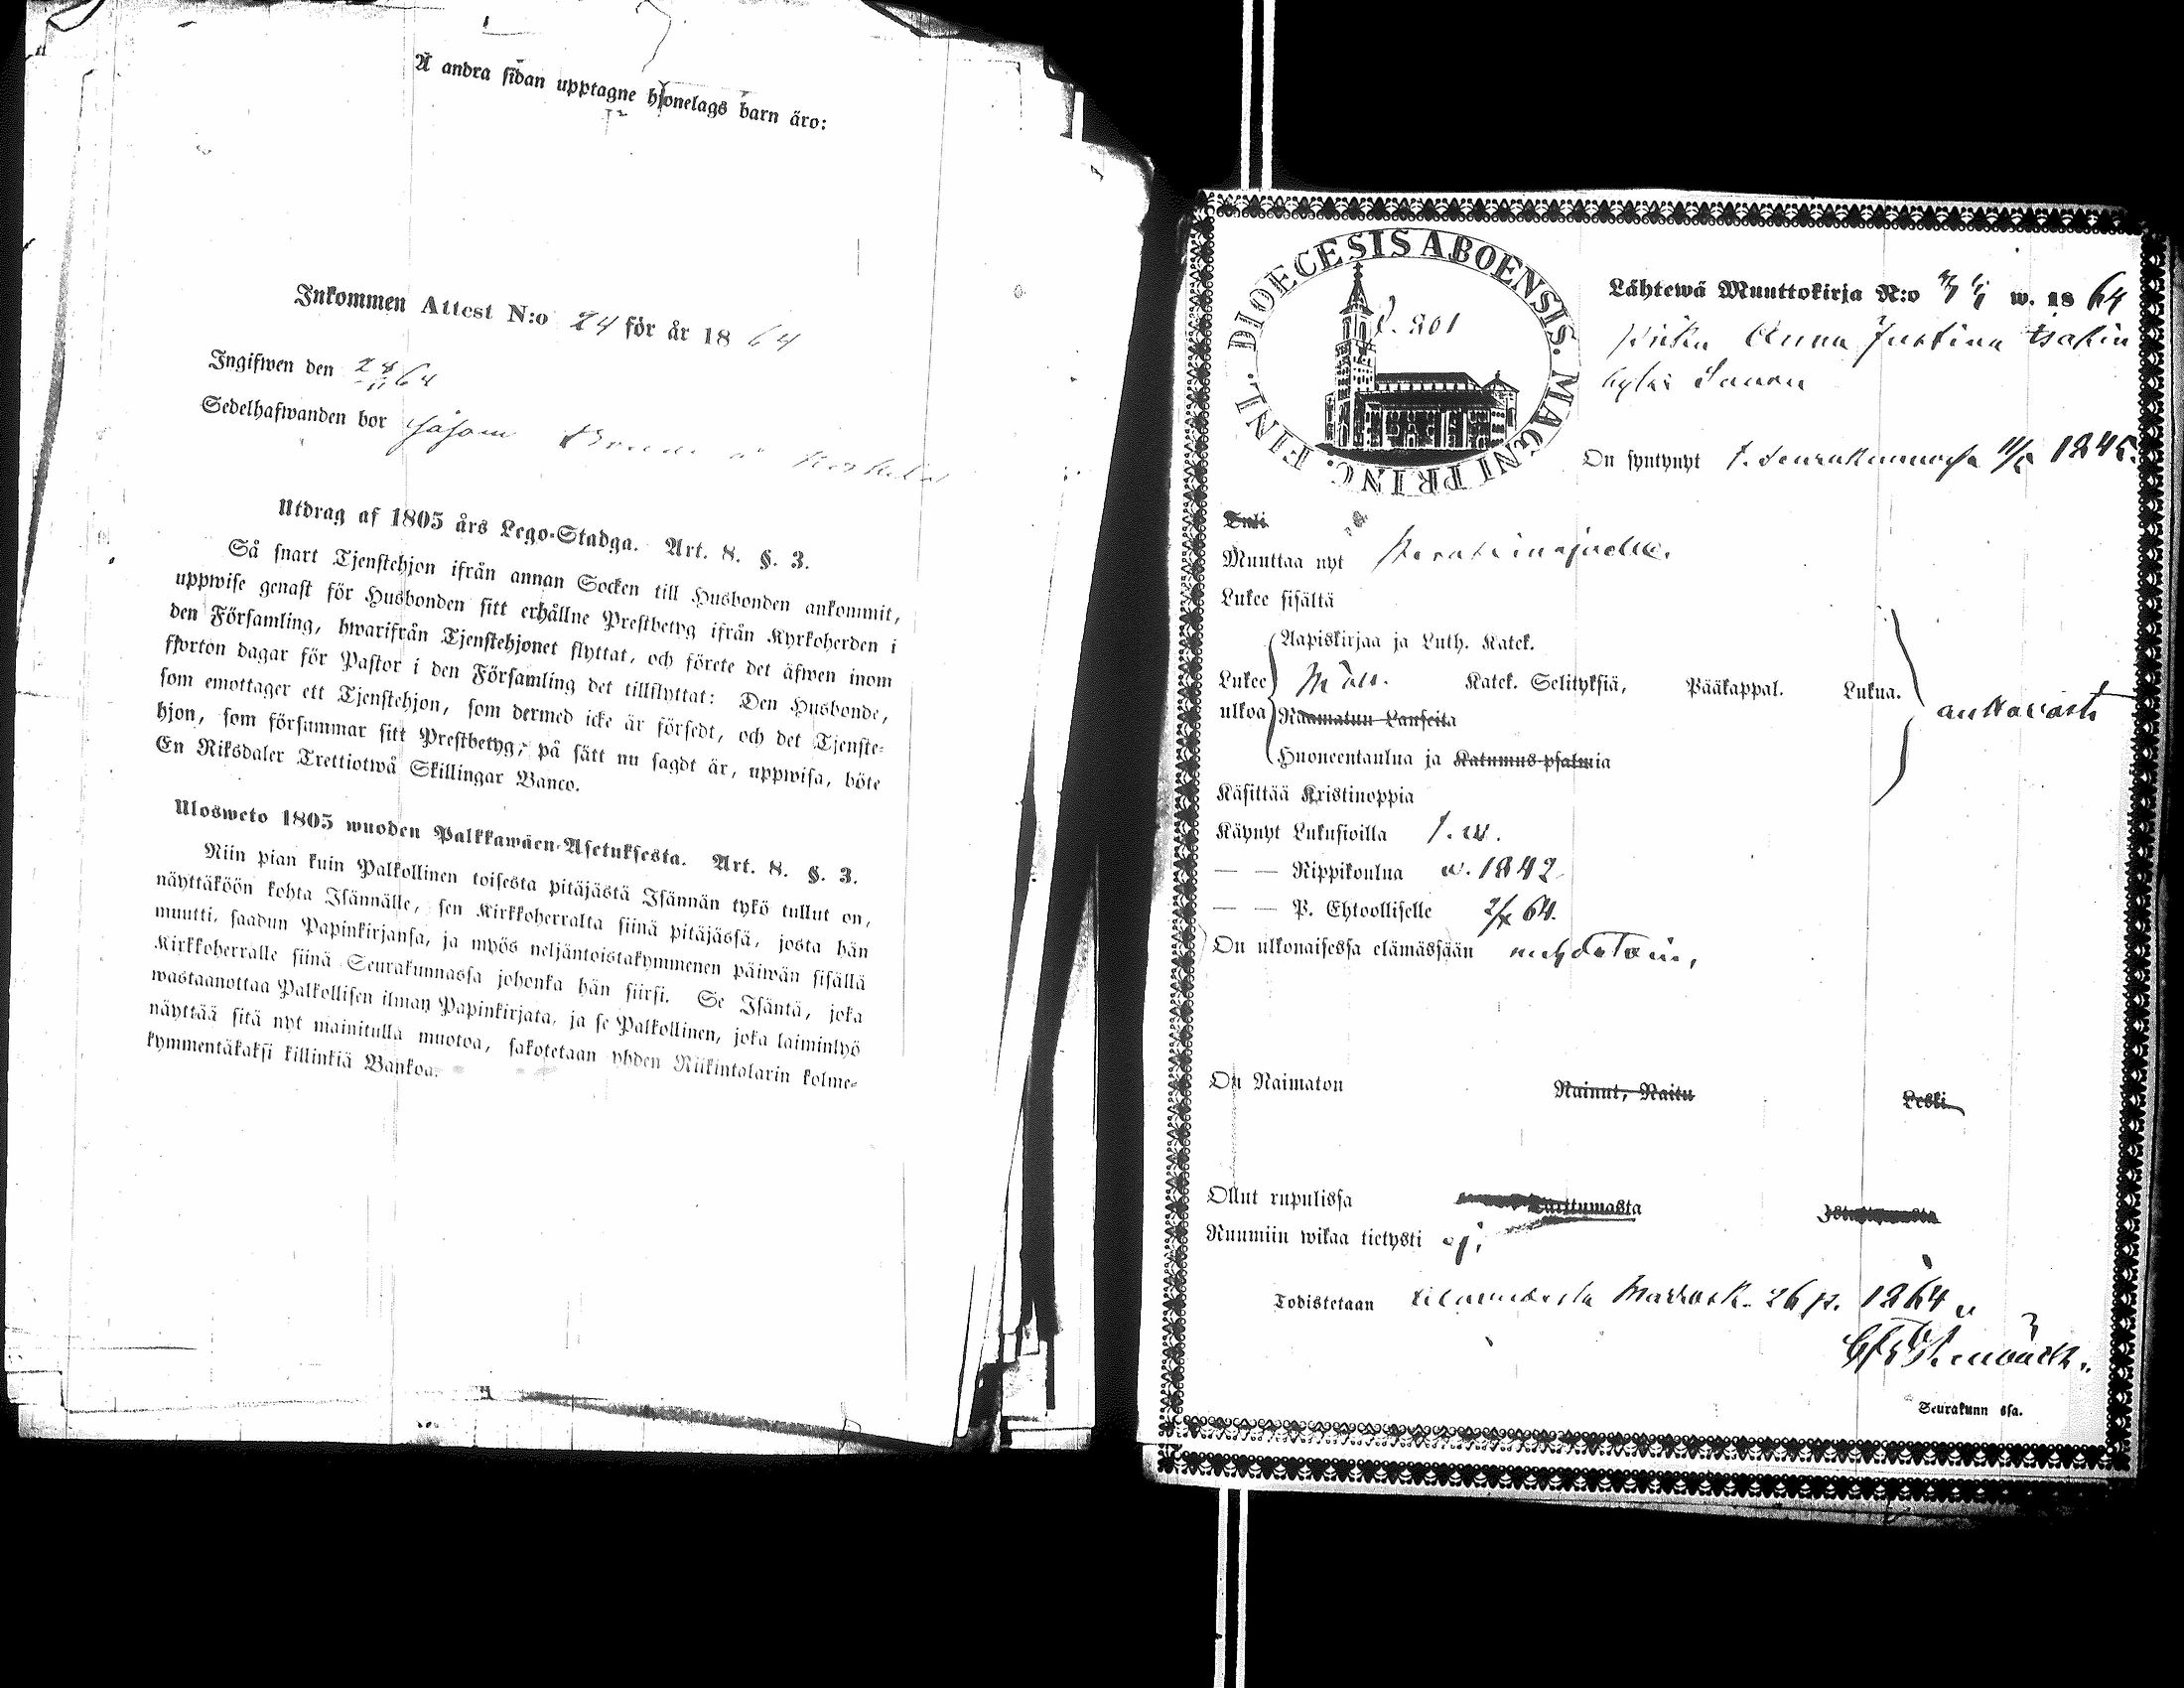 Å andra sidan upptagne hjonelags barn äro:
Inkommen Attest N:o 24 för år 1864
Ingifwen den 28/11 64
Sedelhafwanden bor såsom
Utdrag af 1805 års Lego-Stadga. Art. 8. §. 3.
Så snart Tjenstehjon ifrån annan Socken till Husbonden ankommit,
uppwise genast för Husbonden sitt erhållne Prestbetyg ifrån Kyrkoherden i
den Församling, hwarifrån Tjenstehjonet flyttat, och förete det äfwen inom
fjorton dagar för Pastor i den Församling det tillflyttat: Den Husbonde,
som emottager ett Tjenstehjon, som dermed icke är försedt, och det Tjenste-
hjon, som försummar sitt Prestbetyg, på sätt nu sagdt är, uppwisa, böte
En Riksdaler Trettiotwå Skillingar Banco.
Ulosweto 1805 wuoden Palkkawäen-Asetuksesta. Art. 8. §. 3.
Niin pian kuin Palkollinen toisesta pitäjästä Isännän tykö tullut on,
näyttäköön kohta Isännälle, sen Kirkkoherralta siinä pitäjässä, josta hän
muutti, saadun Papinkirjansa, ja myös neljäntoistakymmenen päiwän sisällä
Kirkkoherralle siinä Seurakunnassa johonka hän siirsi. Se Isäntä, joka
wastaanottaa Palkollisen ilman Papinkirjata, ja se Palkollinen, joka laiminlyö
näyttää sitä nyt mainitulla muotoa, sakotetaan yhden Riikintalarin kolme-
kymmentäkaksi killinkiä Bankoa.
FINL. DIOECESIS ABOENSIS. MAGNI PRINC.
Lähtewä Muuttokirja N:o w. 1864
Piika Anna Justina
On syntynyt t. seurakunnassa
Tuli
Muuttaa nyt
Lukee sisältä
Aapiskirjaa ja Luth. Katek.
Lukee ulkoa Katek. Selityksiä, Pääkappal. Lukua.
Raamatun Lauseita
Huoneentaulua ja Katumus-psalmia
Käsittää Kristinoppia
Käynyt Lukusioilla
— — Rippikoulua w. 1842
— — P. Ehtoolliselle 2/x 64.
On ulkonaisessa elämässään
On Naimaton Nainut, Naitu Leski
Ollut rupulissa
Ruumiin wikaa tietysti ej,
Todistetaan Marrask. 26 p. 1864
Seurakunn ssa.